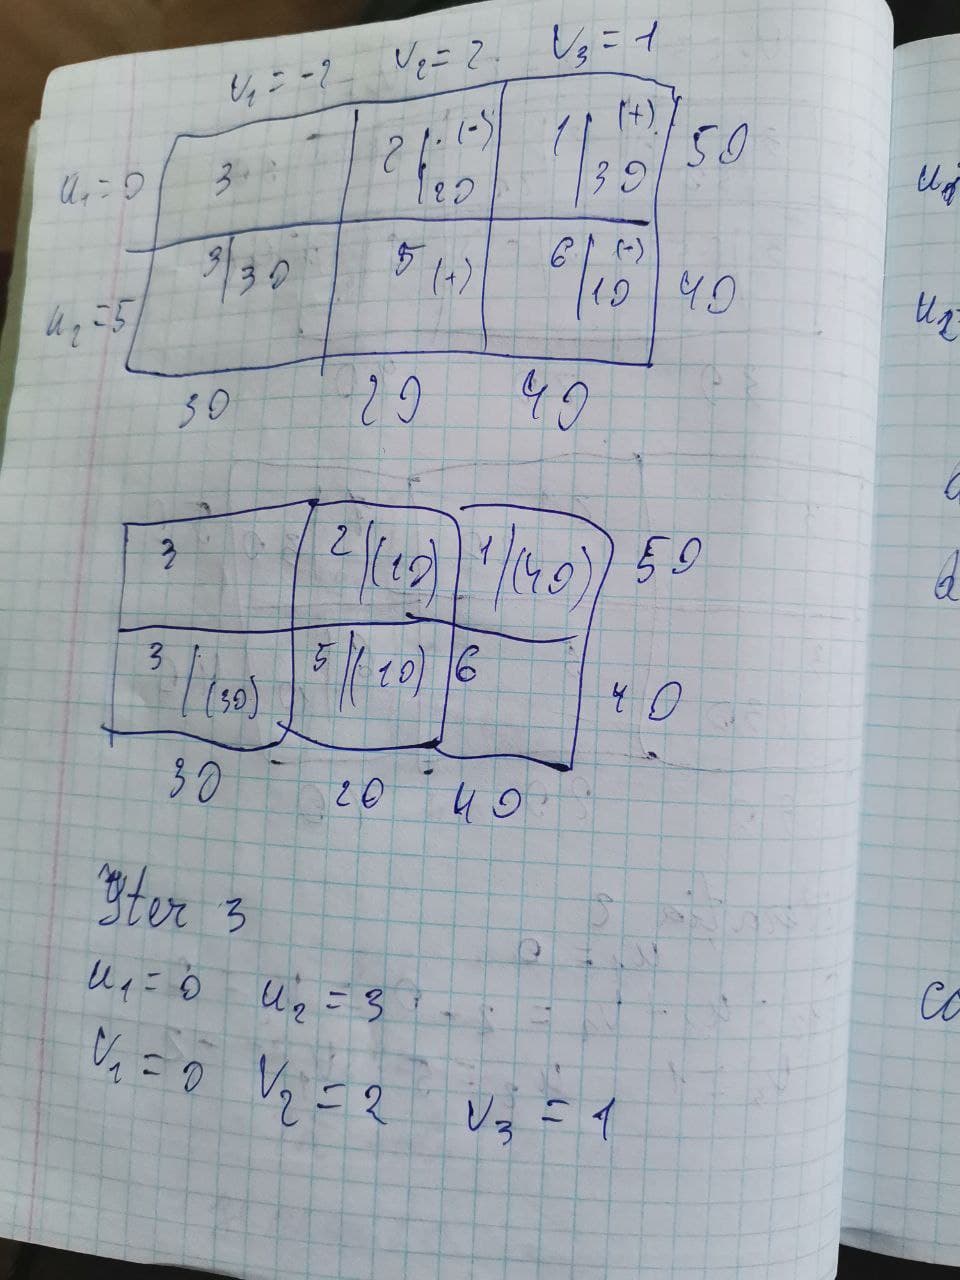 v₁ = -2 v₂ = 2 v₃ = 1
u₁ = 0 3 2 | (-) 20 1 | (+) 30 50
u₂ = 5 3 | 30 5 (+) 6 | (-) 10 40
30 20 40
3 2 | (10) 1 | (40) 50
3 | (30) 5 | (10) 6 40
30 20 40
Iter 3
u₁ = 0 u₂ = 3
v₁ = 0 v₂ = 2 v₃ = 1